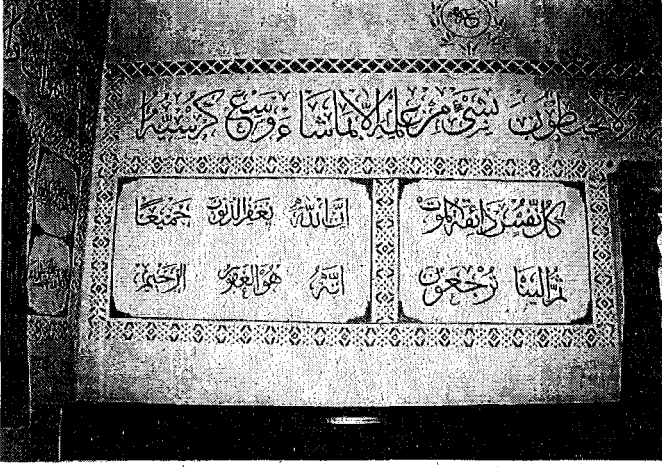 ولا يحيطون بشيء من علمه إلا بما شاء وسع كرسيه
كل نفس ذائقة الموت
ثم إلينا ترجعون
إن الله يغفر الذنوب جميعا
إنه هو الغفور الرحيم